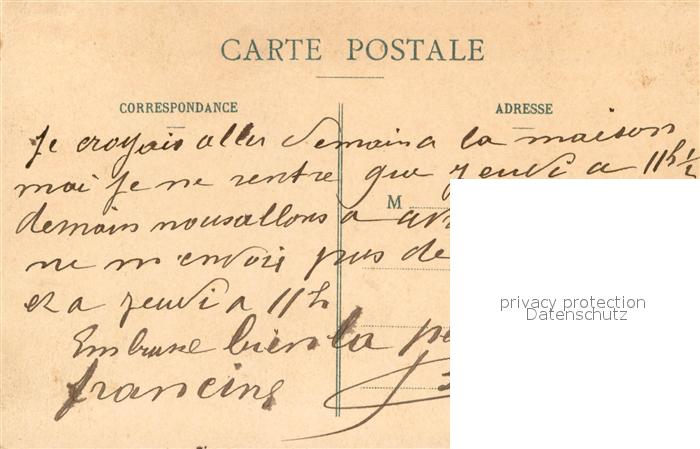 CARTE POSTALE
CORRESPONDANCE
ADRESSE
Je croyais aller demain a la maison
mai je ne rentre que jeudi a 11h ½
M
demain nous allons a
ne m'envoie pas de
et a jeudi a 11h
Embrasse bien la
francine
privacy protection
Datenschutz